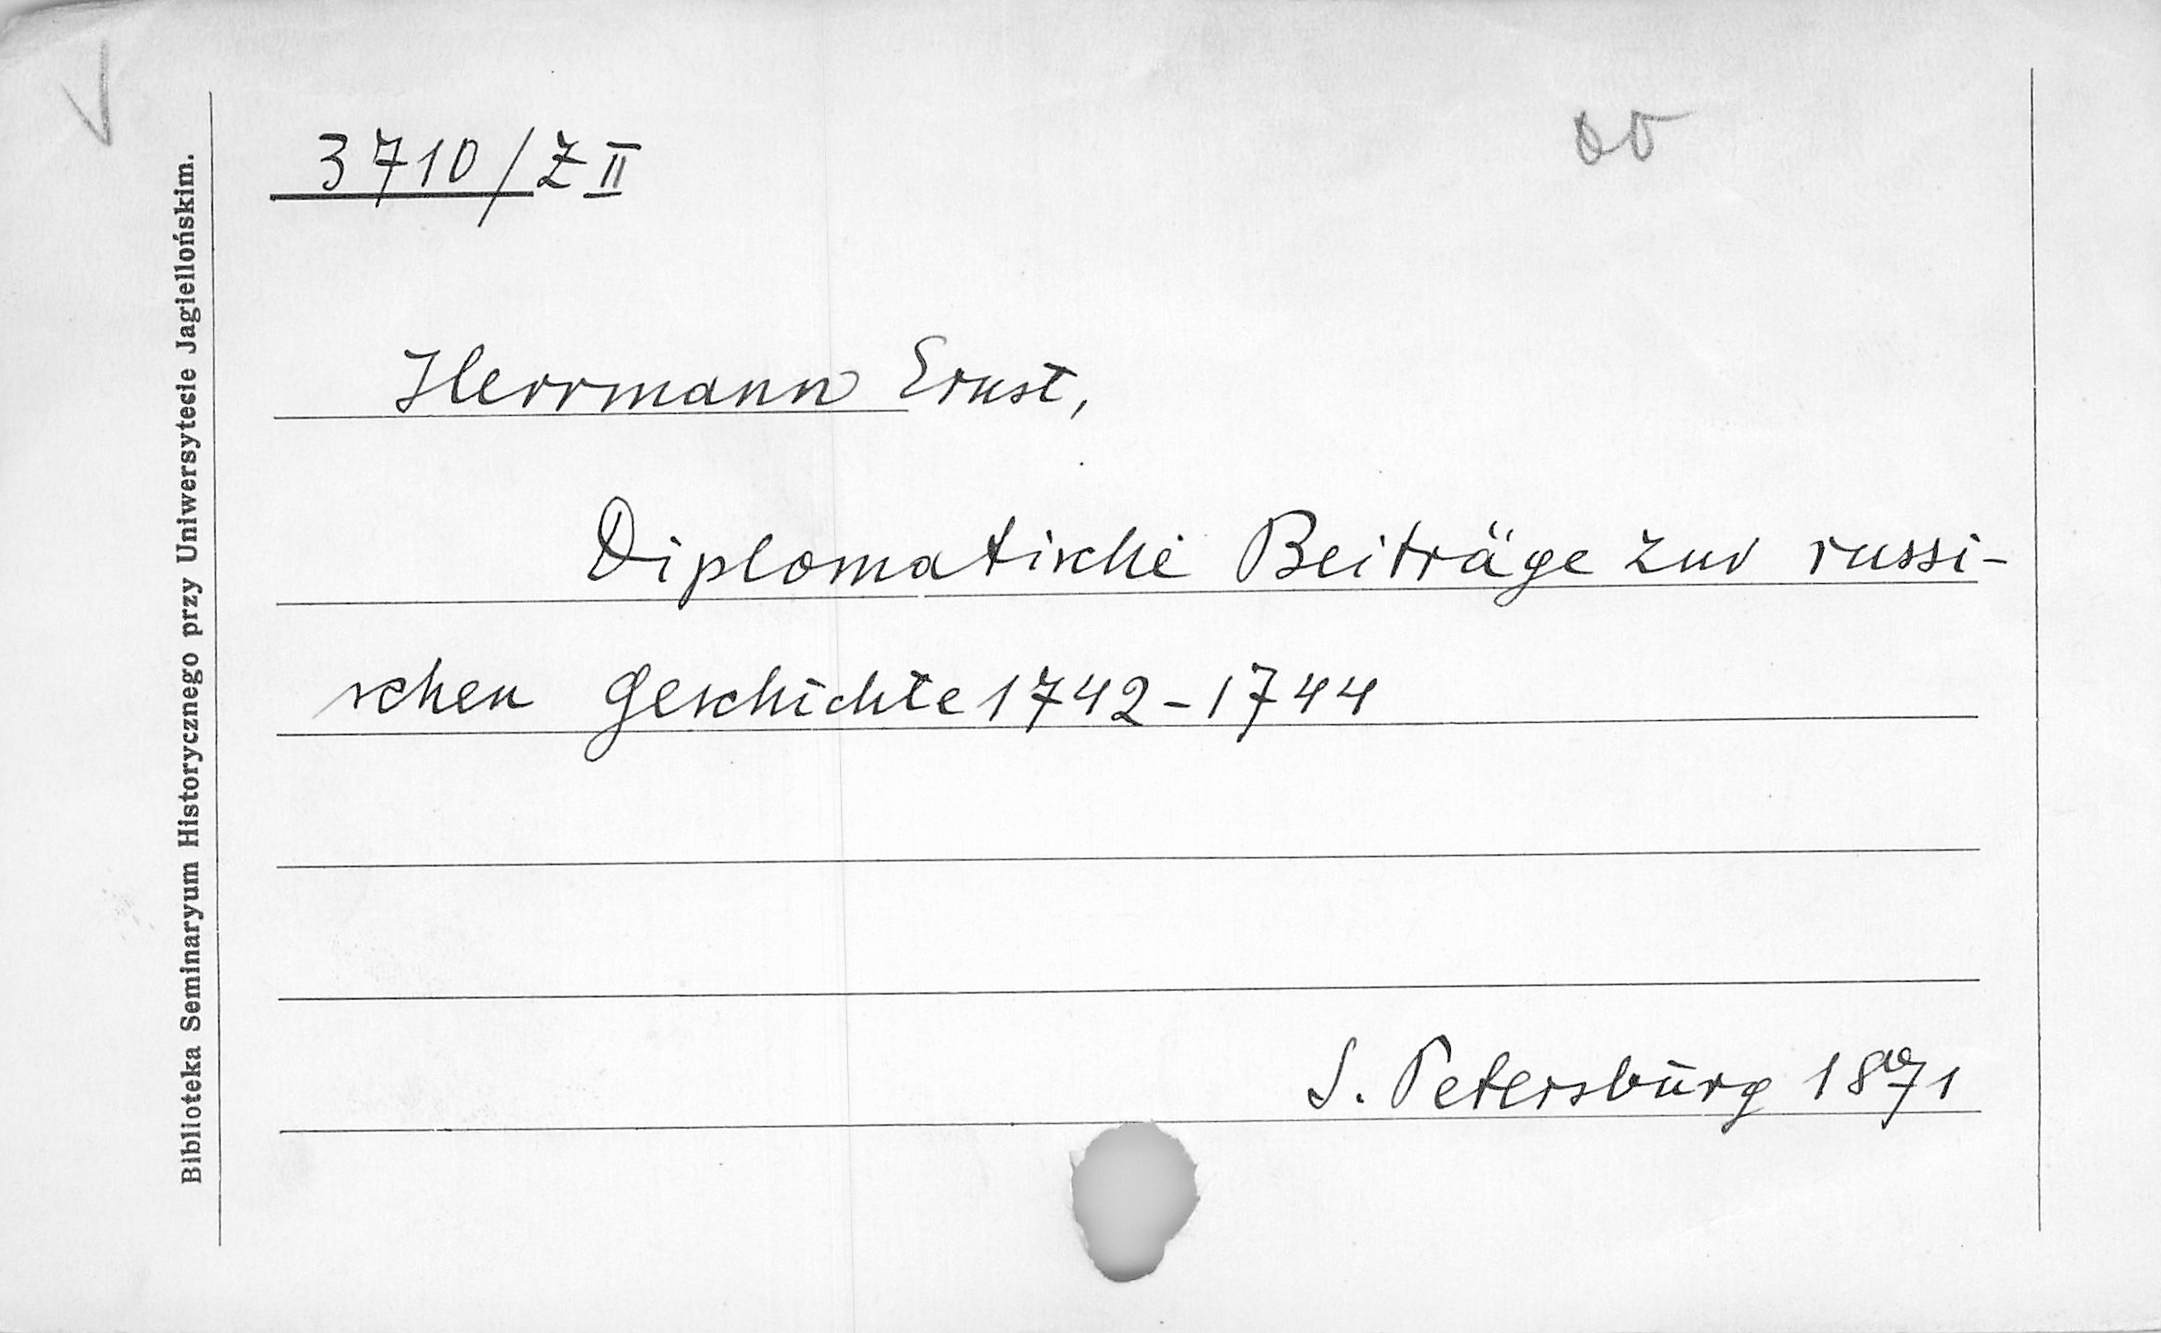 3710/Z II
Herrmann Ernst,
Diplomatische Beiträge zur russi-
schen Geschichte 1742-1744
S. Petersburg 1871
Biblioteka Seminaryum Historycznego przy Uniwersytecie Jagiellońskim.